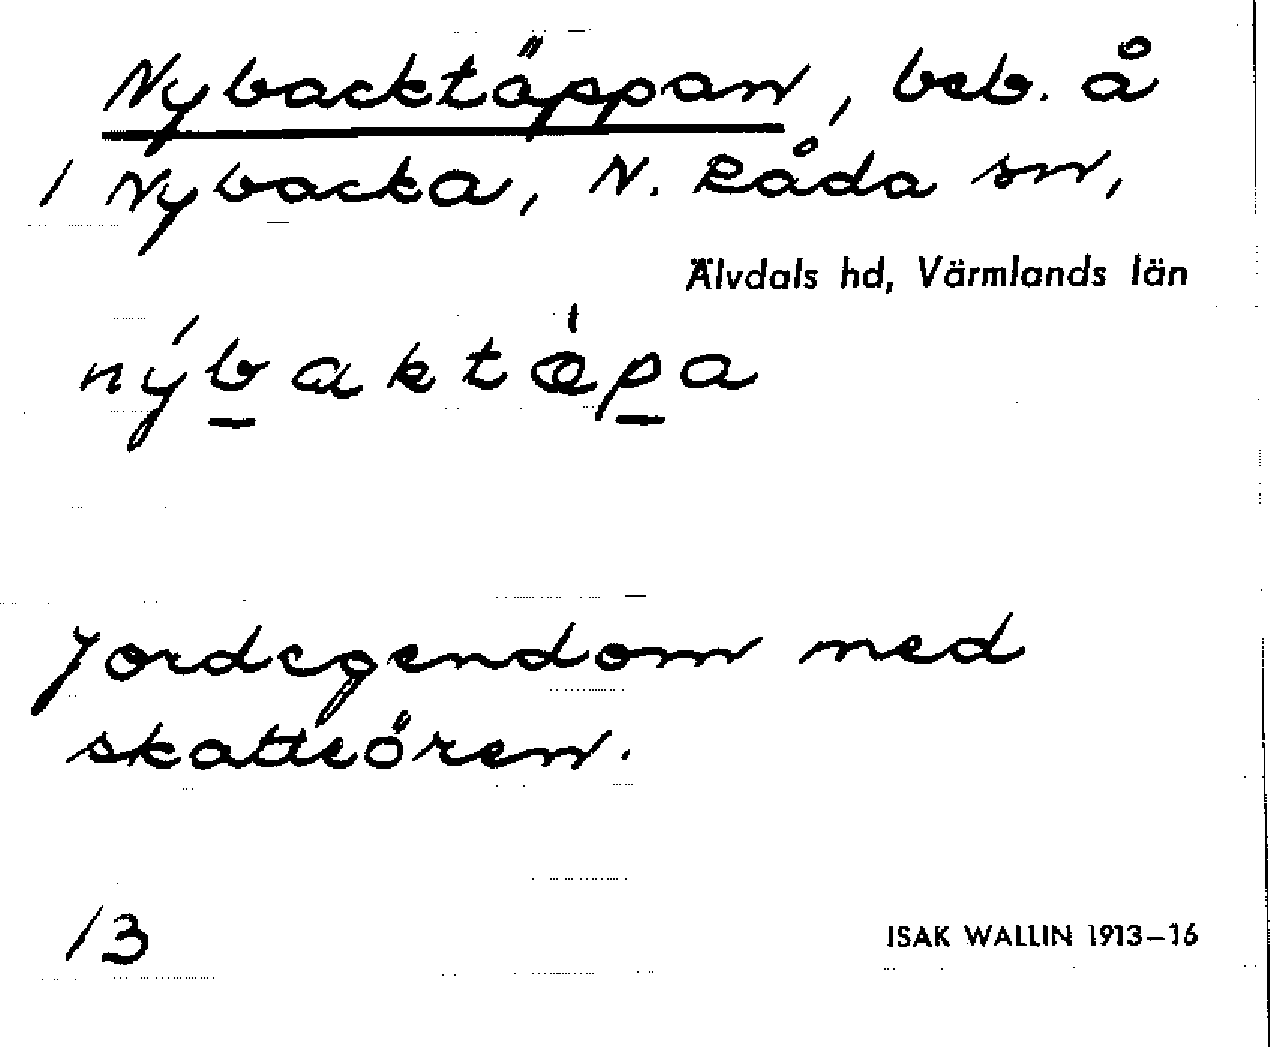 Nybacktäppan, beb. å
1 Nybacka, N. Råda sn,
Älvdals hd, Värmlands län
nýbaktæ̀pa
Jordegendom med
skatteören.
13
ISAK WALLIN 1913–16